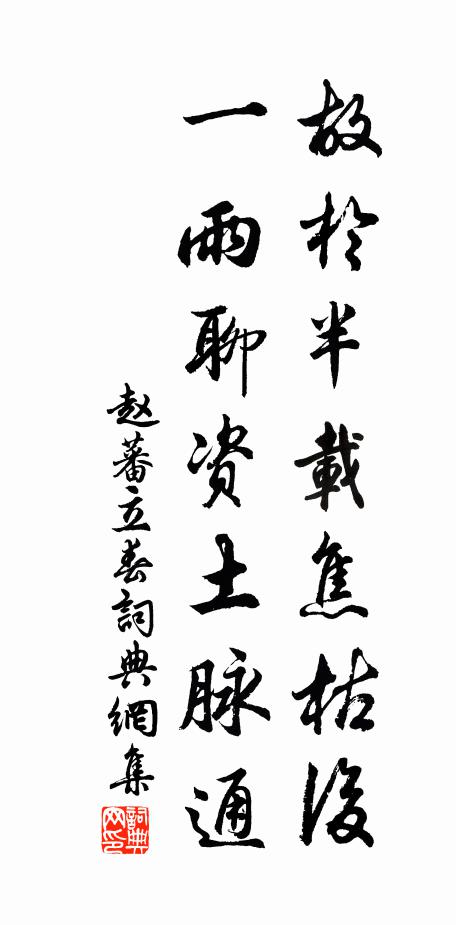 故於半載焦枯後
一雨聊資土脉通
赵蕃立春詞典網集
詞典网印